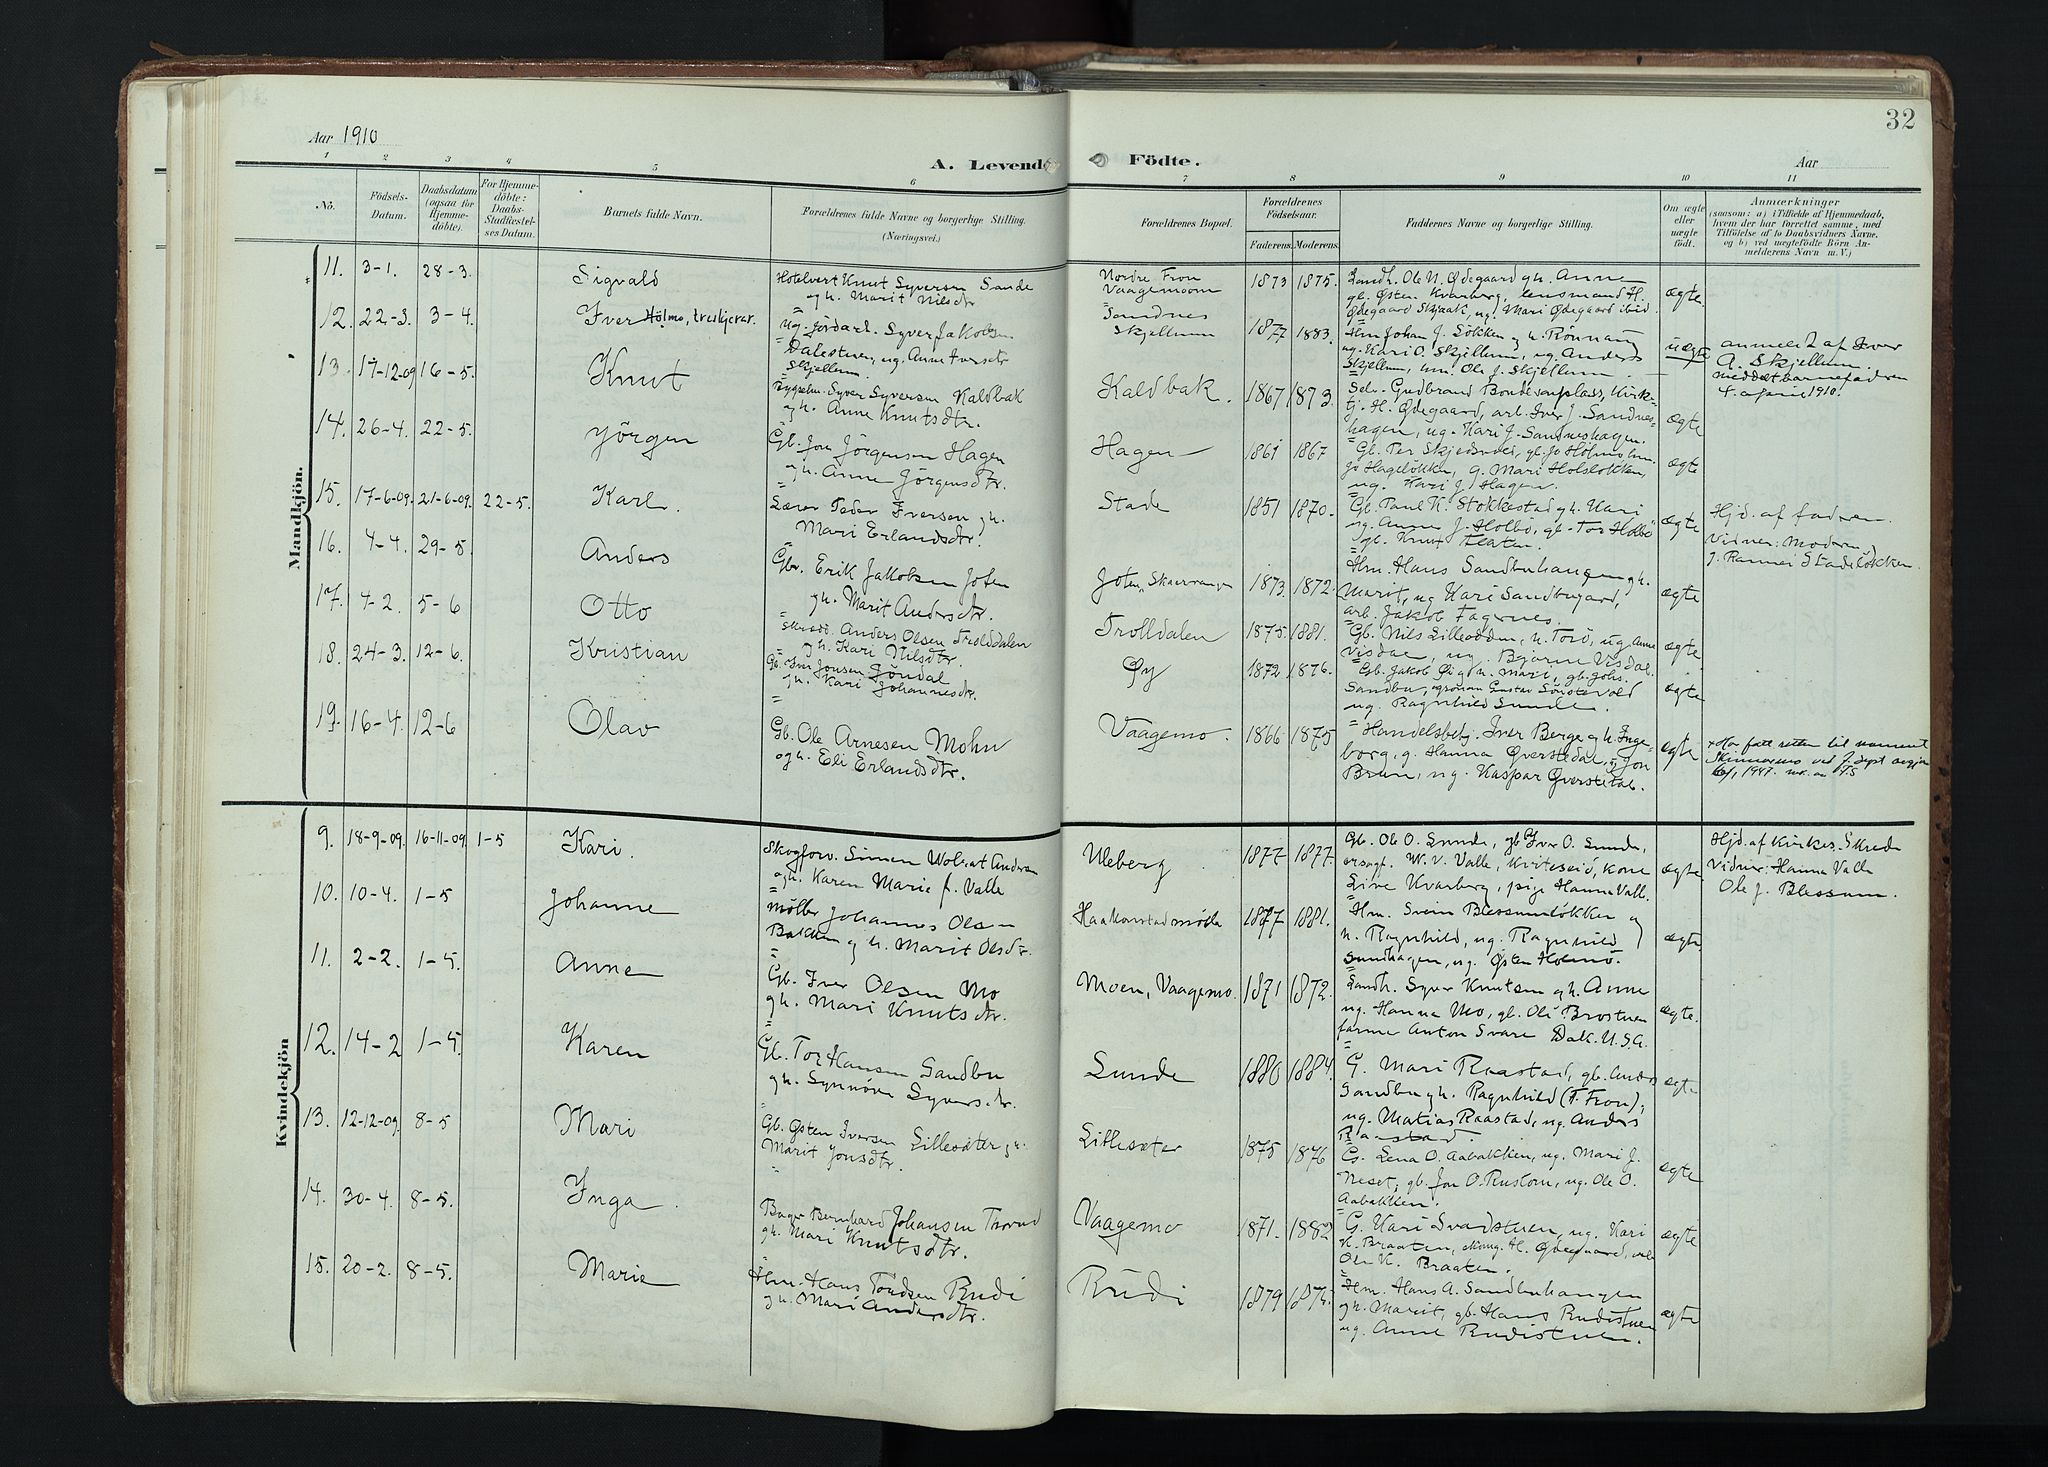 Aar 1910
A. Levende Födte.
Aar
32
1 2 3 4 5 6 7 8 9 10 11
No.
Födsels-Datum.
Daabsdatum (ogsaa for Hjemme-döbte).
For Hjemme-döbte: Daabs-Stadfæstel-ses Datum.
Barnets fulde Navn.
Forældrenes fulde Navne og borgerlige Stilling. (Næringsvei.)
Forældrenes Bopæl.
Forældrenes Födselsaar.
Faderens. Moderens.
Faddernes Navne og borgerlige Stilling.
Om ægte eller uægte födt.
Anmærkninger
(saasom: a) i Tilfælde af Hjemmedaab,
hvem der har forrettet samme, med
Tilföielse af to Daabsvidners Navne,
og b) ved uægtefödte Börn An-
melderens Navn m. V.)
Mandkjön.
11. 3-1. 28-3. Sigvald
Hotelvert Knut Syversen Sande
og h. Marit Nilsdtr
Nordre Fron
Vaagemoom
1873 1875.
Landh. Ole N. Ødegaard gh. Anne
gb. Østen Kvarberg, lensmand H.
Ødegaard Skjaak, ug. Mari Ødegaard ibid.
ægte.
12. 22-3. 3-4. Iver Holmo, treskjærer.
ug. Syver Jakobsen
Dalestuen, ug. Anne Iversdtr
Skjellum.
Sandnes
Skjellum
1877 1883.
Hm Johan J. Løkken og h. Rønnaug
ug. Kari O. Skjellum, ug. Anders
Skjellum, hm. Ole J. Skjellum.
uægte
anmeldt af Iver
A. Skjellum.
meddelt barnefaderen
4. april 1910.
13. 17-12-09 16-5. Knut
Syver Syversen Kaldbak
og h. Anne Knutsdtr.
Kaldbak.
1867 1873.
Gudbrand Bondevenplass, Kirk-
tj. H. Ødegaard, arb. Iver J. Sandnes-
hagen, ug. Kari J. Sandneshagen.
ægte
14. 26-4. 22-5. Jørgen
Gb. Jon Jörgensen Hagen
og h. Anne Jörgensdtr.
Hagen
1861 1867
Gb. Per Skjedsvoll, gb. Jo Holmo, hm.
Jo Hageløkken, g. Mari Holsløkken,
ug. Kari J. Hagen.
ægte
15. 17-6-09. 21-6-09. 22-5. Karl.
Lærer Peder Iversen gh.
Mari Erlandsdtr.
Stade
1851 1870.
Gb. Paul K. Stokkestad gh. Kari
ug. Anne J. Holbø, gb. Tor Holbø
gb. Knut
ægte
Hjd. af faderen.
Vidner: Moderen,
j. Rannei Stadeløkken.
16. 4-4. 29-5. Anders
Gbr. Erik Jakobsen Joten
gh. Marit Andersdtr.
Joten, Skaarvangen
1873. 1872.
Hm. Hans Sandbuhaugen gh.
Marit, ug Kari Sandbugard,
arb. Jakob Fagernes.
ægte
17. 4-2. 5-6 Otto
Skredd. Anders Olsen Trolddalen
gh. Kari Nilsdtr.
Trolldalen
1875. 1881.
Gb. Nils Lilleødden, h. Torø, ug. Anne
Visdal, ug. Bjarne Visdal.
ægte
18. 24-3. 12-6. Kristian
Gb. Iver Jonsen Jöndal
gh. Kari Johannesdtr.
Øy
1872 1876.
Gb. Jakob Øi gh. Mari, gb. Johs.
Sandbu, Gustav Sönstevold
ug. Ragnhild Sunde.
ægte
19. 16-4. 12-6 Olav
Gb. Ole Arnesen Mohn
og h. Eli Erlandsdtr.
Vaagemo.
1866 1875
Handelsbetj. Iver Berge og h. Inge-
borg, g. Hanna Øverstedal, ug Jon
Brun, ug. Kaspar Øverstedal.
ægte
+ Har fått retten til navnet
ved J. dept
1947. nr. 75
Kvindekjön
9. 18-9-09. 16-11-09. 1-5 Kari.
Skogforv. Simen Andersen
og h. Karen Marie f. Valle
Uleberg
1877 1877.
Gb. Ole O. Sunde, gb Iver O. Sunde,
W. V. Valle, Kviteseid, kone
Live Kvarberg, pige Hanna Valle.
ægte
Hjd. af Kirkes.
Vidner: Hanna Valle
Ole J. Blessum.
10. 10-4. 1-5 Johanne
Møller Johannes Olsen
Bakken og h. Marit Olsdtr.
Haakenstadmølle
1877 1881.
Hm. Svein Blessumløkken og
h. Ragnhild, ug. Ragnhild
Sundhagen, ug. Østen Holmo.
ægte
11. 2-2. 1-5. Anne
Gb. Iver Olsen Mo
gh. Mari Knutsdtr.
Moen, Vaagemo.
1871 1872.
Landh. Syver Knutsen gh. Anne
ug. Hanna Mo, gb. Ole Brostuen
farmer Anton Svare Dak. U.S.A.
ægte.
12. 14-2 1-5. Karen
Gb. Tor Hansen Sandbu
gh. Synnöve Syversdtr.
Sunde
1880 1884.
G. Mari Raastad, gb. Anders
Sandbu gh. Ragnhild (S. Fron),
ug. Matias Raastad, ug. Anders
Raastad.
ægte
13. 12-12-09. 8-5 Mari
Gb. Østen Iversen Lillesæter gh.
Marit Jonsdtr.
Lillesæter
1875 1876
G. Lena O. Aabakken, ug. Mari J.
Neset, gb. Jon O. Rusten, ug. Ole O.
Aabakken.
ægte
14. 30-4. 8-5. Inga.
Bager Bernhard Johansen
gh. Mari Knutsdtr.
Vaagemo
1871. 1882
G. Kari Svadstuen, ug. Kari
K. Braaten, H. Ødegaard,
Ole K. Braaten.
ægte
15. 20-2. 8-5. Marie
Hm. Hans Tordsen Rudi
gh. Mari Andersdtr.
Rudi
1879 1874.
Hm. Hans A. Sandbuhaugen
gh. Marit, gb. Hans Rudistuen
ug. Anne Rudistuen.
ægte